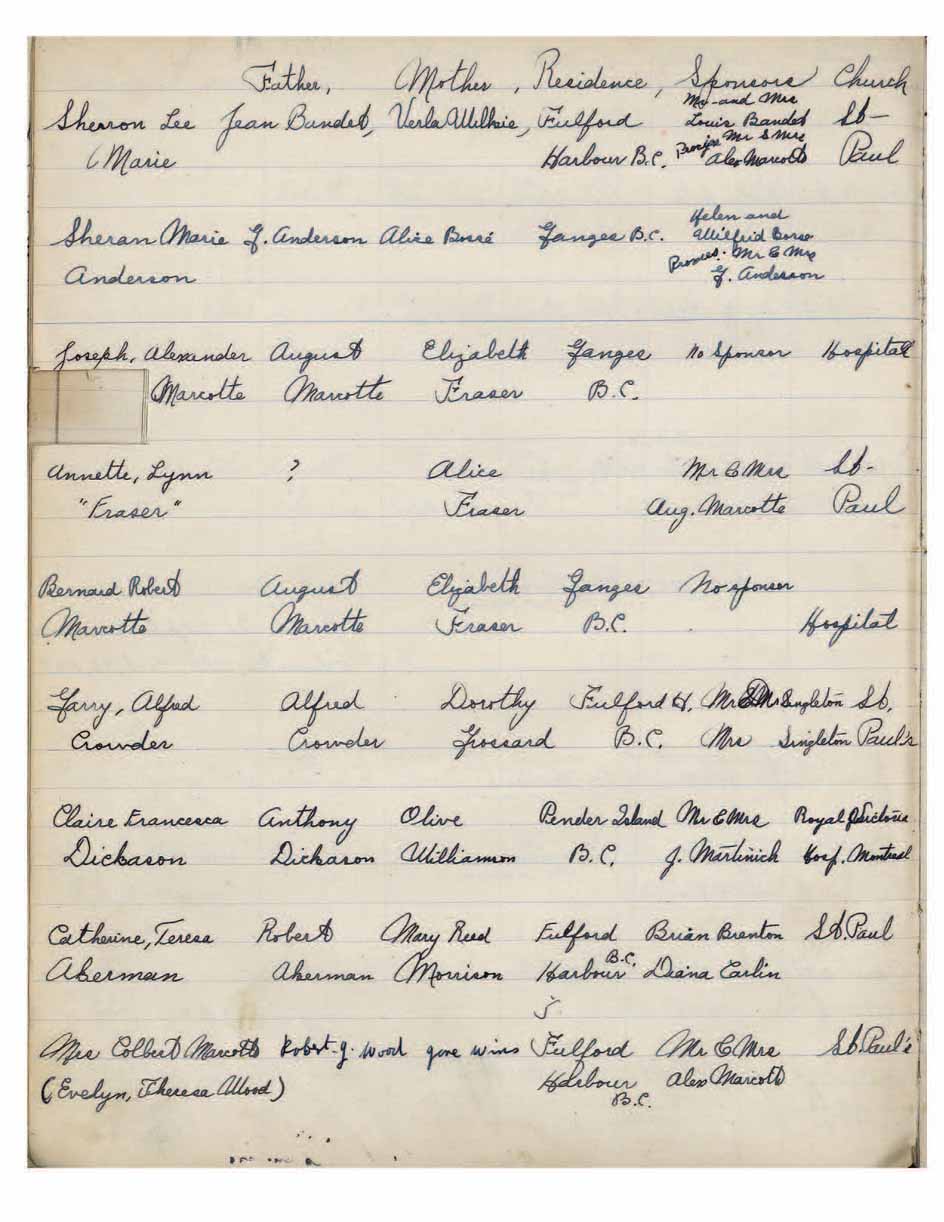 Father, Mother, Residence, Sponsors Church
Mr and Mrs
Sherron Lee Jean Bandet, Verla Wilkie, Fulford Louis Bandet St-
Proxies Mr & Mrs
(Marie Harbour B.C. Alex Marcotte Paul
Helen and
Sheran Marie G. Anderson Alice Bossé Ganges B.C. Wilfrid Bosse
Proxies. Mr & Mrs
Anderson G. Anderson
Joseph, Alexander August Elizabeth Ganges No Sponsor Hospital
Marcotte Marcotte Fraser B.C.
Annette, Lynn ? Alice Mr & Mrs St-
"Fraser" Fraser Aug. Marcotte Paul
Bernard Robert August Elizabeth Ganges No sponsor
Marcotte Marcotte Fraser B.C. Hospital
Garry, Alfred Alfred Dorothy Fulford H. Mr & Mrs Singleton St.
Crowder Crowder Grossard B.C. Mrs Singleton Paul's
Claire Francesca Anthony Olive Pender Island Mr & Mrs Royal Victoria
Dickason Dickason Williamson B.C. J. Martinich Hosp. Montreal
Catherine, Teresa Robert Mary Reed Fulford Brian Brenton St. Paul
B.C.
Akerman Akerman Morrison Harbour Diana Earlin
Mrs Colbert Marcotte Robert J. Wood Fulford Mr & Mrs St. Paul's
(Evelyn, Theresa Wood) Harbour Alex Marcotte
B.C.